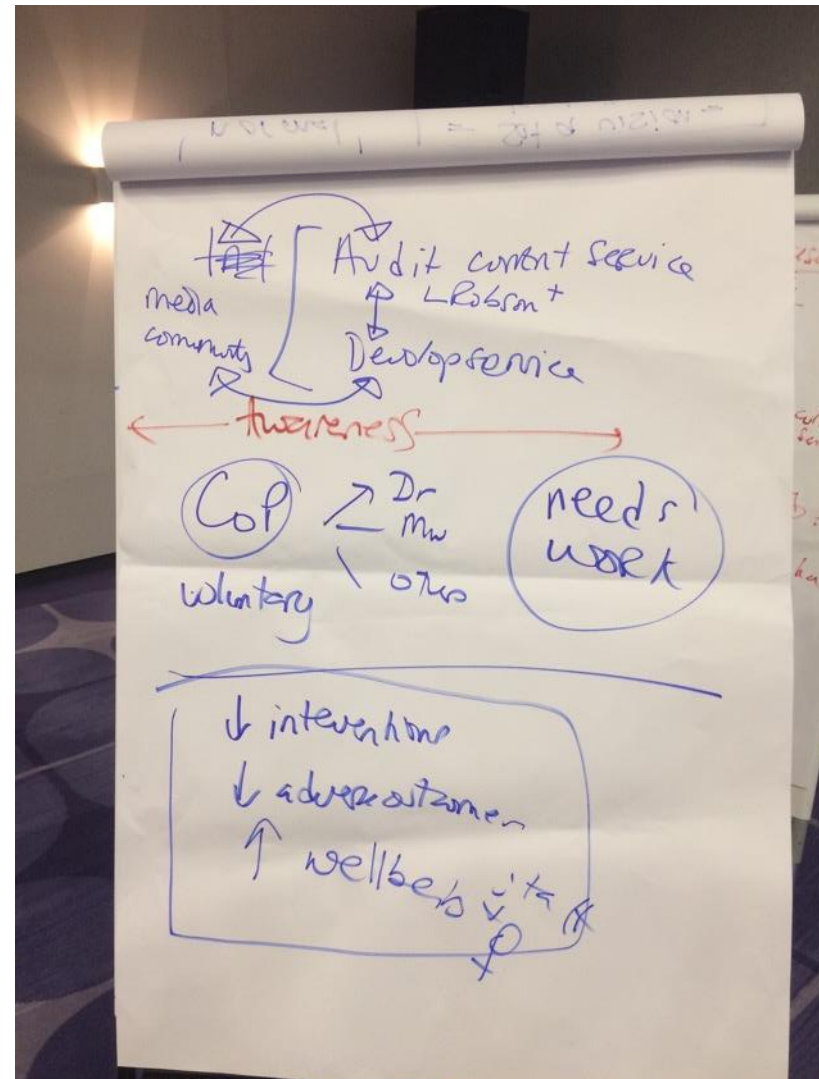 Audit current service
LRobson +
media
community
Develop service
Awareness
CoP
Dr
Mw
others
voluntary
needs
work
↓ interventions
↓ adverse outcomes
↑ wellbeing